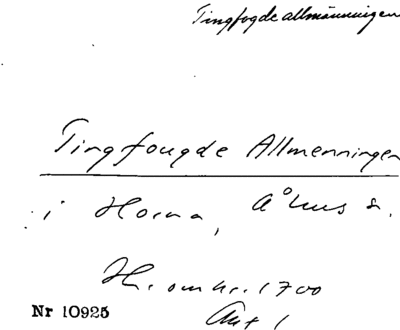 Tingfogde allmänningen
Tingfougde Allmenningen
i Horna, Åhus s.
Hr. omkr. 1700
Nr 10925